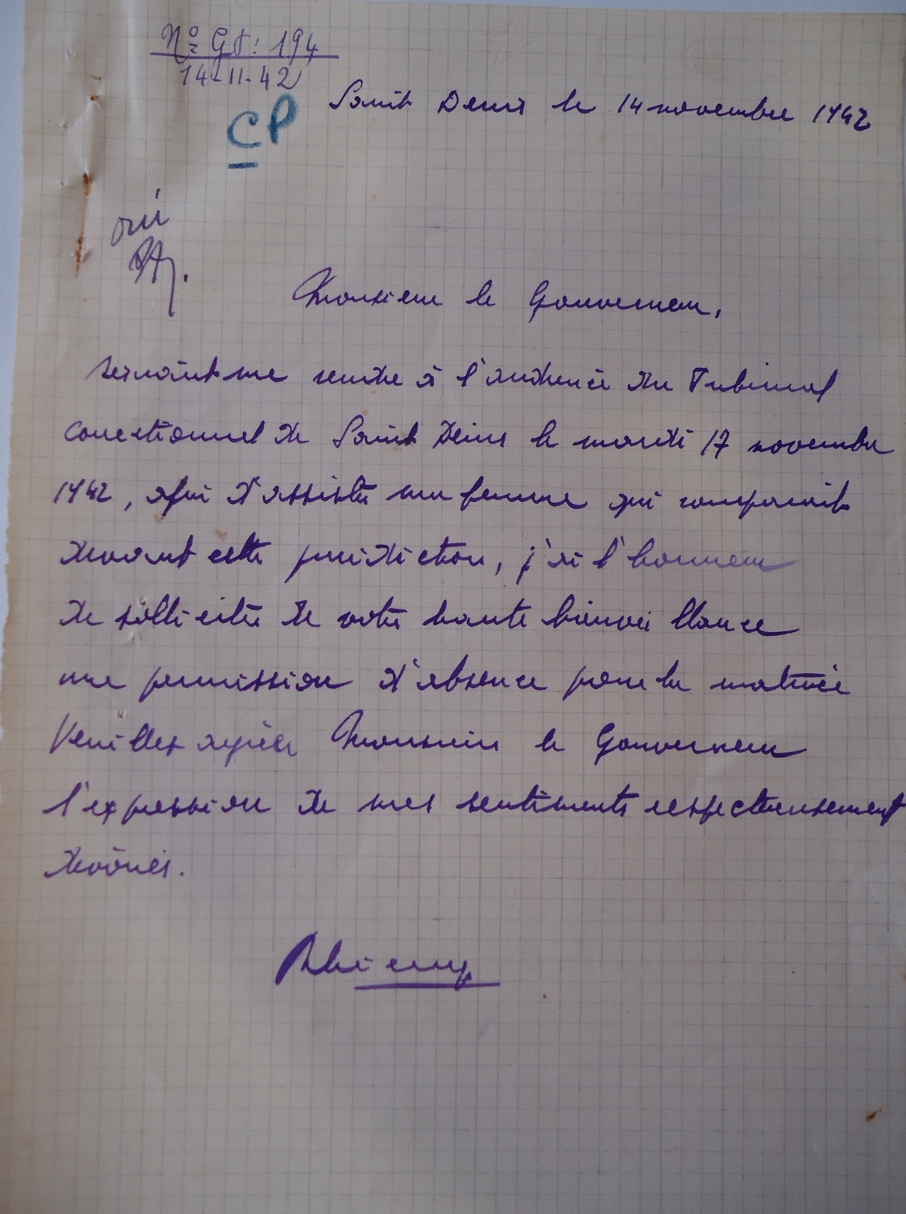 Nº GT: 194
14-11-42
CP
Saint Denis le 14 novembre 1942
oui
Monsieur le Gouverneur,
devant me rendre à l'audience du Tribunal
Correctionnel de Saint Denis le mardi 17 novembre
1942, afin d'assister ma femme qui comparait
devant cette juridiction, j'ai l'honneur
de solliciter de votre haute bienveillance
une permission d'absence pour la matinée
Veuillez agréer Monsieur le Gouverneur
l'expression de mes sentiments respectueusement
dévoués.